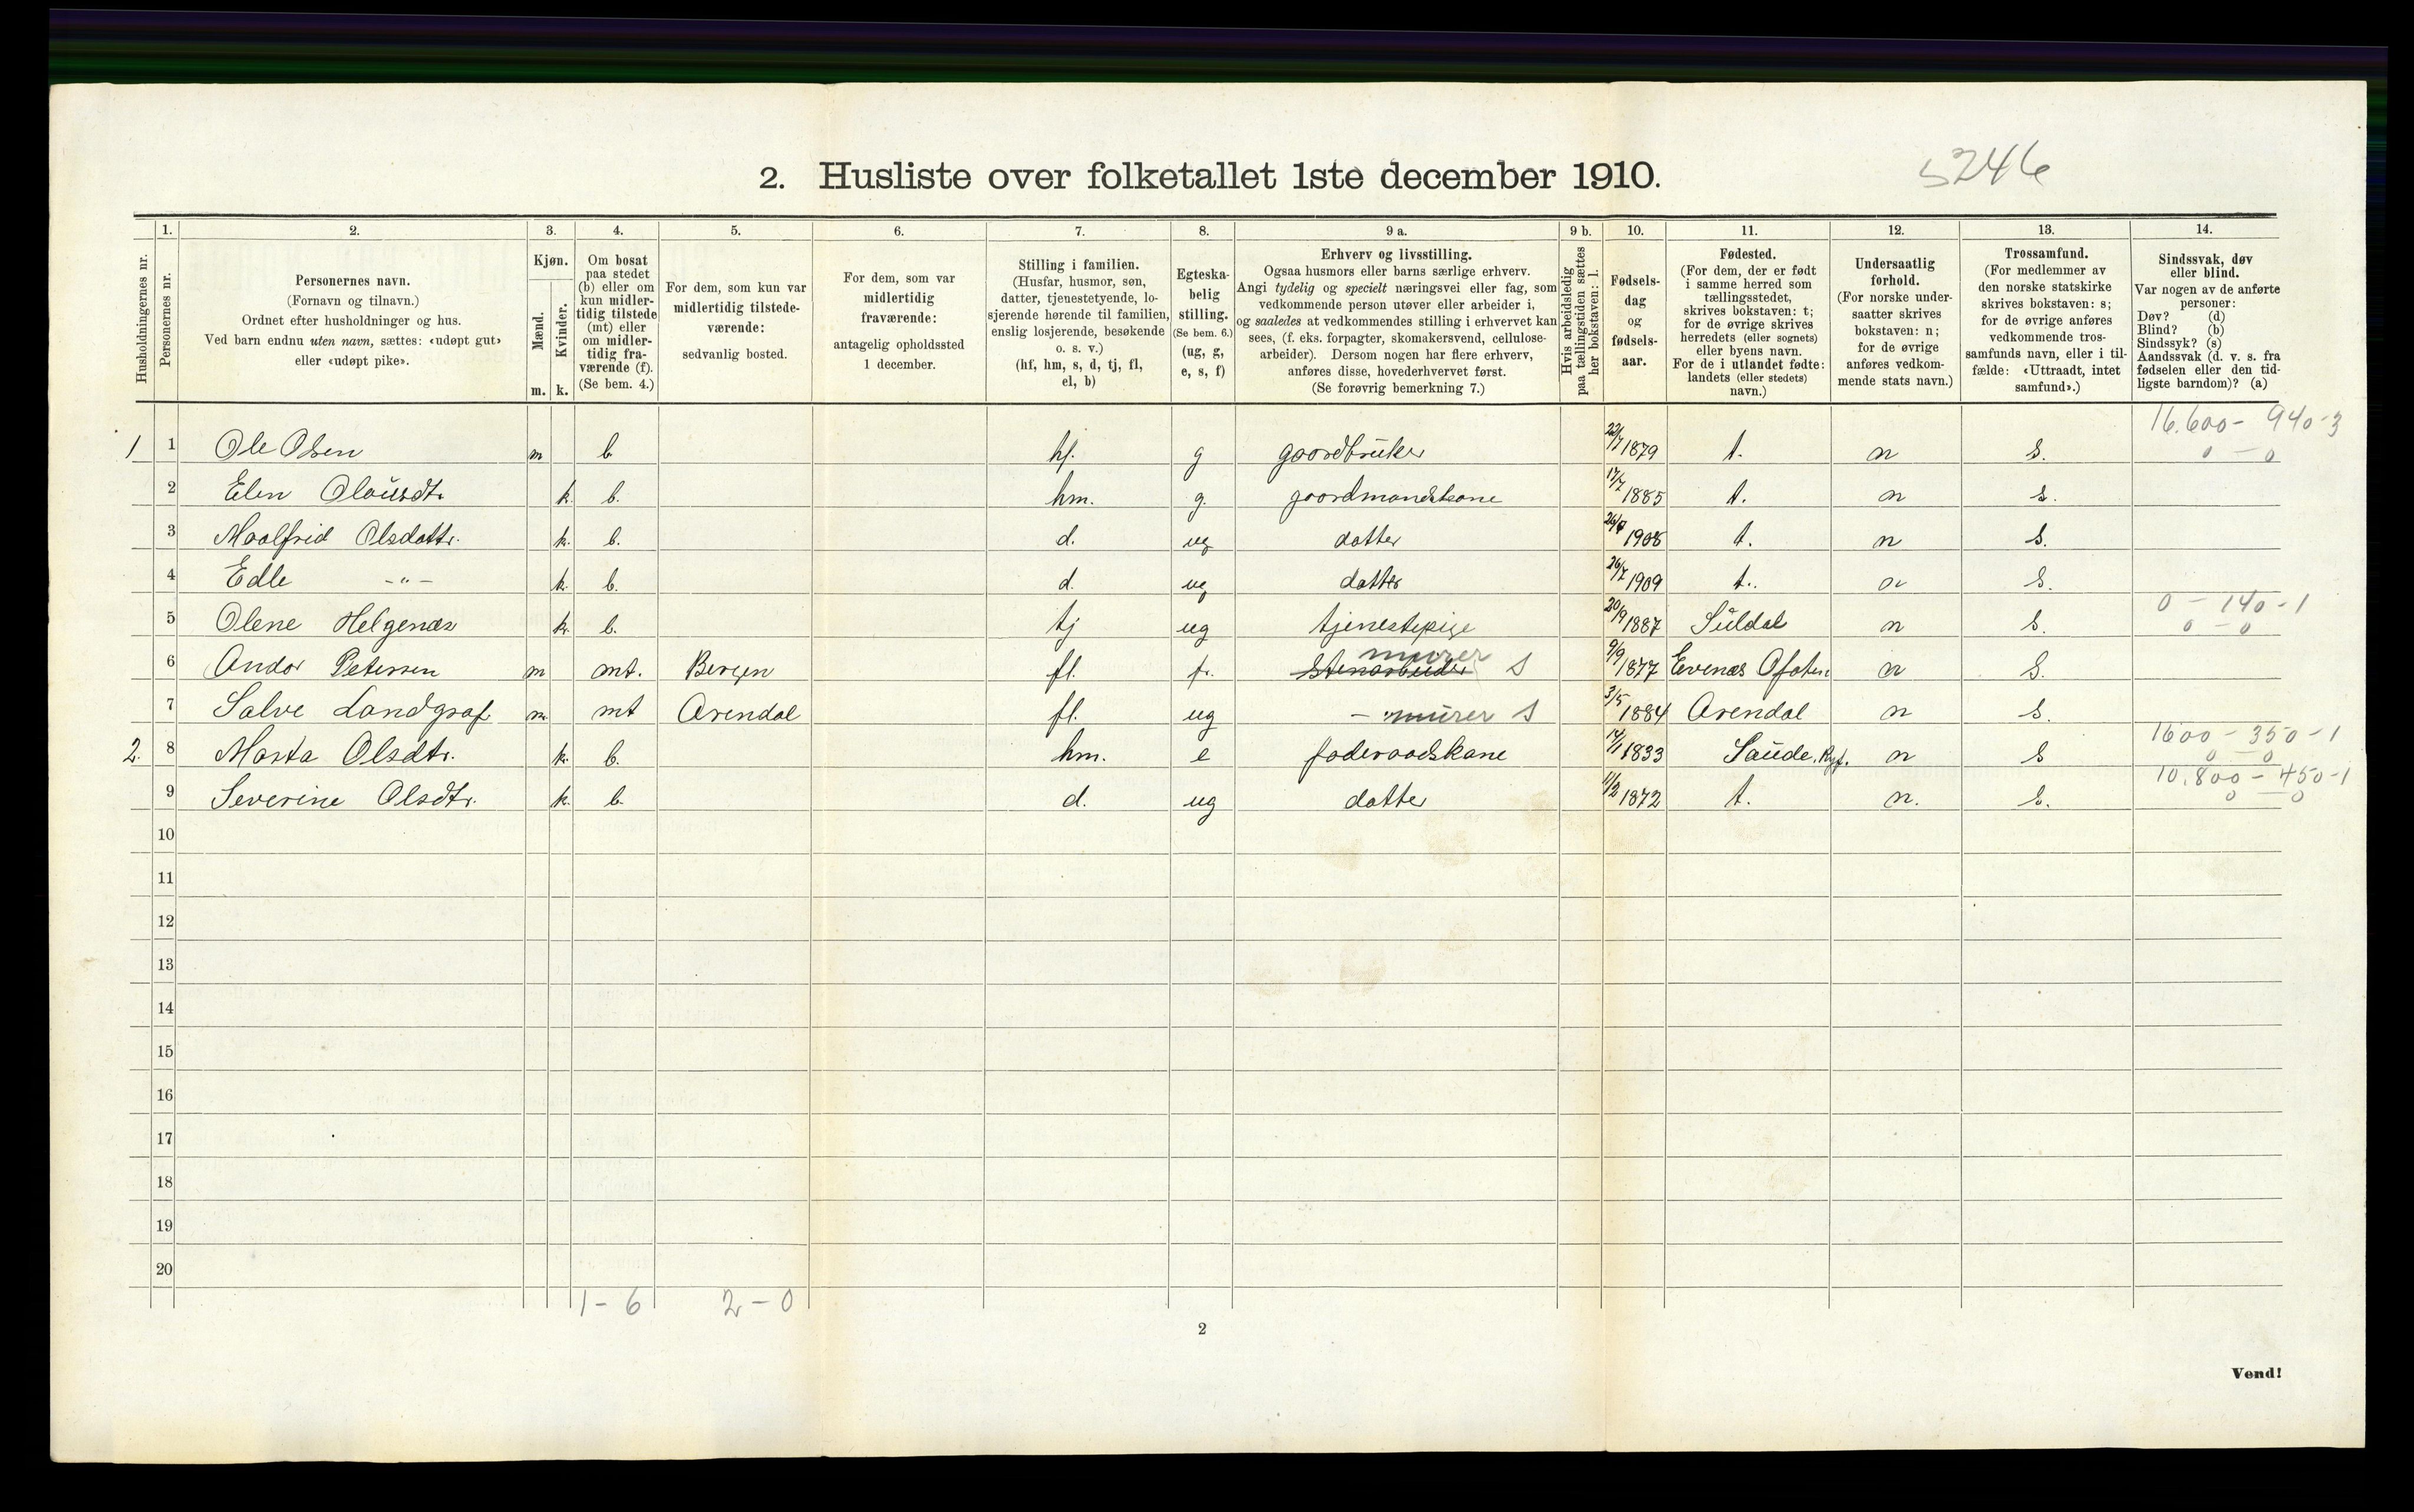 5246
2. Husliste over folketallet 1ste december 1910.
Husholdningernes nr.
1.
Personernes nr.
2.
Personernes navn.
(Fornavn og tilnavn.)
Ordnet efter husholdninger og hus.
Ved barn endnu uten navn, sættes: «udøpt gut»
eller «udøpt pike».
3.
Kjøn.
Mænd.
Kvinder.
m. k.
4.
Om bosat
paa stedet
(b) eller om
kun midler-
tidig tilstede
(mt) eller
om midler-
tidig fra-
værende (f).
(Se bem. 4.)
5.
For dem, som kun var
midlertidig tilstede-
værende:
sedvanlig bosted.
6.
For dem, som var
midlertidig
fraværende:
antagelig opholdssted
1 december.
7.
Stilling i familien.
(Husfar, husmor, søn,
datter, tjenestetyende, lo-
sjerende hørende til familien,
enslig losjerende, besøkende
o. s. v.)
(hf, hm, s, d, tj, fl,
el, b)
8.
Egteska-
belig
stilling.
(Se bem. 6.)
(ug, g,
e, s, f)
9 a.
Erhverv og livsstilling.
Ogsaa husmors eller barns særlige erhverv.
Angi tydelig og specielt næringsvei eller fag, som
vedkommende person utøver eller arbeider i,
og saaledes at vedkommendes stilling i erhvervet kan
sees, (f. eks. forpagter, skomakersvend, cellulose-
arbeider). Dersom nogen har flere erhverv,
anføres disse, hovederhvervet først.
(Se forøvrig bemerkning 7.)
9 b.
Hvis arbeidsledig
paa tællingstiden sættes
her bokstaven: l.
10.
Fødsels-
dag
og
fødsels-
aar.
11.
Fødested.
(For dem, der er født
i samme herred som
tællingsstedet,
skrives bokstaven: t;
for de øvrige skrives
herredets (eller sognets)
eller byens navn.
For de i utlandet fødte:
landets (eller stedets)
navn.)
12.
Undersaatlig
forhold.
(For norske under-
saatter skrives
bokstaven: n;
for de øvrige
anføres vedkom-
mende stats navn.)
13.
Trossamfund.
(For medlemmer av
den norske statskirke
skrives bokstaven: s;
for de øvrige anføres
vedkommende tros-
samfunds navn, eller i til-
fælde: «Uttraadt, intet
samfund».)
14.
Sindssvak, døv
eller blind.
Var nogen av de anførte
personer:
Døv? (d)
Blind? (b)
Sindssyk? (s)
Aandssvak (d. v. s. fra
fødselen eller den tid-
ligste barndom)? (a)
16.600 - 940-3
1 1 Ole Olsen m b hf. g gaardbruker 22/7 1879 t. n s. 0 - 0
2 Elen Olausdtr k. b. hm. g. gaardmandskone 17/7 1885 t. n s.
3 Maalfrid Olsdattr. k. b. d. ug datter 1908 t. n s.
4 Edle -"- k. b. d. ug datter 26/7 1909 t. n s.
0 - 140-1
5 Olene Helgenæs k. b. tj ug tjenestepige 20/9 1887 Suldal n s. 0 - 0
murer
6 Andor Petersen m mt. Bergen fl. fr. stenarbeider s 9/9 1877 Evenæs Ofoten n s.
7 Salve Landgraf m mt Arendal fl. ug - murer s 3/5 1884 Arendal n s.
1600 - 350-1
2. 8 Marta Olsdtr. k. b. hm. e føderaadskone 14/1 1833 Saude, Ryf. n s 0 - 0
10.800 - 450-1
9 Severine Olsdtr. k. b. d. ug datter 11/2 1872 t. n. s. 0 - 0
10
11
12
13
14
15
16
17
18
19
20
1-6 2-0
2
Vend!